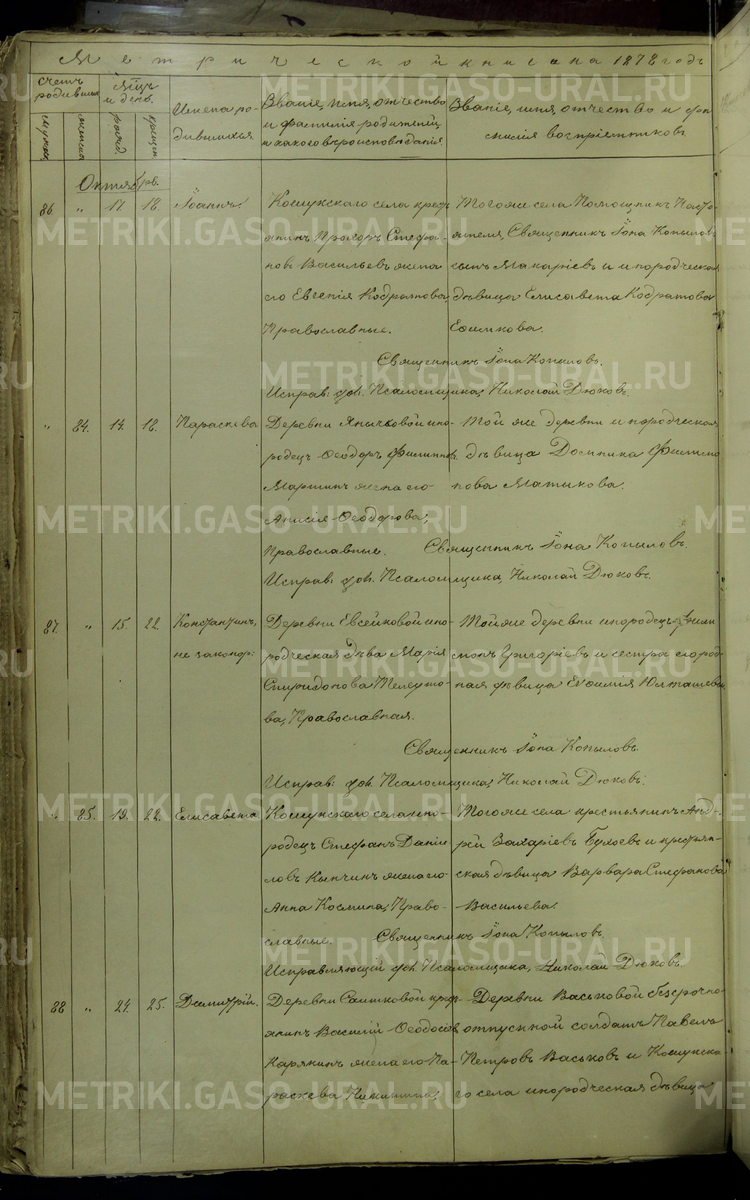 Метрической книги на 1878 годъ
Счетъ родившихся
мужеска
женска
Мѣсяцъ и день
рожд.
крещен.
Имена родившихся.
Званіе, имя, отчество и фамилія родителей и какого вѣроисповѣданія
Званіе, имя, отчество и фамилія воспріемниковъ
Октябрь.
86. " 17. 18. Іоаннъ.
Кошукскаго села кресть-
янинъ Прохоръ Стефа-
новъ Васильевъ жена
его Евгенія Кодратова,
Православные.
Тогоже села Помощникъ Насто-
ятеля Священникъ Іона Копылов
сынъ Макаріевъ и инородческая
дѣвица Елисавета Кодратова
Ефимкова.
Священникъ Іона Копыловъ.
Исправ. дол. Псаломщика, Николай Дюковъ.
" 84. 14. 18. Параскева
Деревни Янычковой ино-
родецъ Ѳеодоръ Филиппов
Мартинъ жена его
Анисія Ѳеодорова,
Православные.
Той же деревни инородческая
дѣвица Домника Филип-
пова Матикова.
Священникъ Іона Копыловъ.
Исправ. дол. Псаломщика, Николай Дюковъ.
87. " 15. 22. Константинъ,
не законор.
Деревни Евсейковой ино-
родческая дѣва Марія
Спиридонова
Православная.
Тойже деревни инородецъ
Григоріевъ и сестра его род-
ная дѣвица Евфимія
Священникъ Іона Копыловъ.
Исправ. дол. Псаломщика, Николай Дюковъ.
" 85. 19. 22. Елисавета
Кошукскаго села ино-
родецъ Стефанъ Дании-
ловъ Кынчинъ жена его
Анна Космина, Право-
славные.
Тогоже села крестьянинъ Анд-
рей Захаріевъ и крестьян-
ская дѣвица Варвара Стефанова
Васильева.
Священникъ Іона Копыловъ
Исправляющій дол. Псаломщика, Николай Дюковъ.
88 " 24. 25. Димитрій.
Деревни Саитковой кресть-
янинъ Василій Ѳеодосіев
Карякинъ жена его Па-
раскева Никитина,
Деревни Васьковой безсрочно-
отпускной солдатъ Павелъ
Петровъ Васьковъ и Кошукска-
го села инородческая дѣвица
METRIKI.GASO-URAL.RU